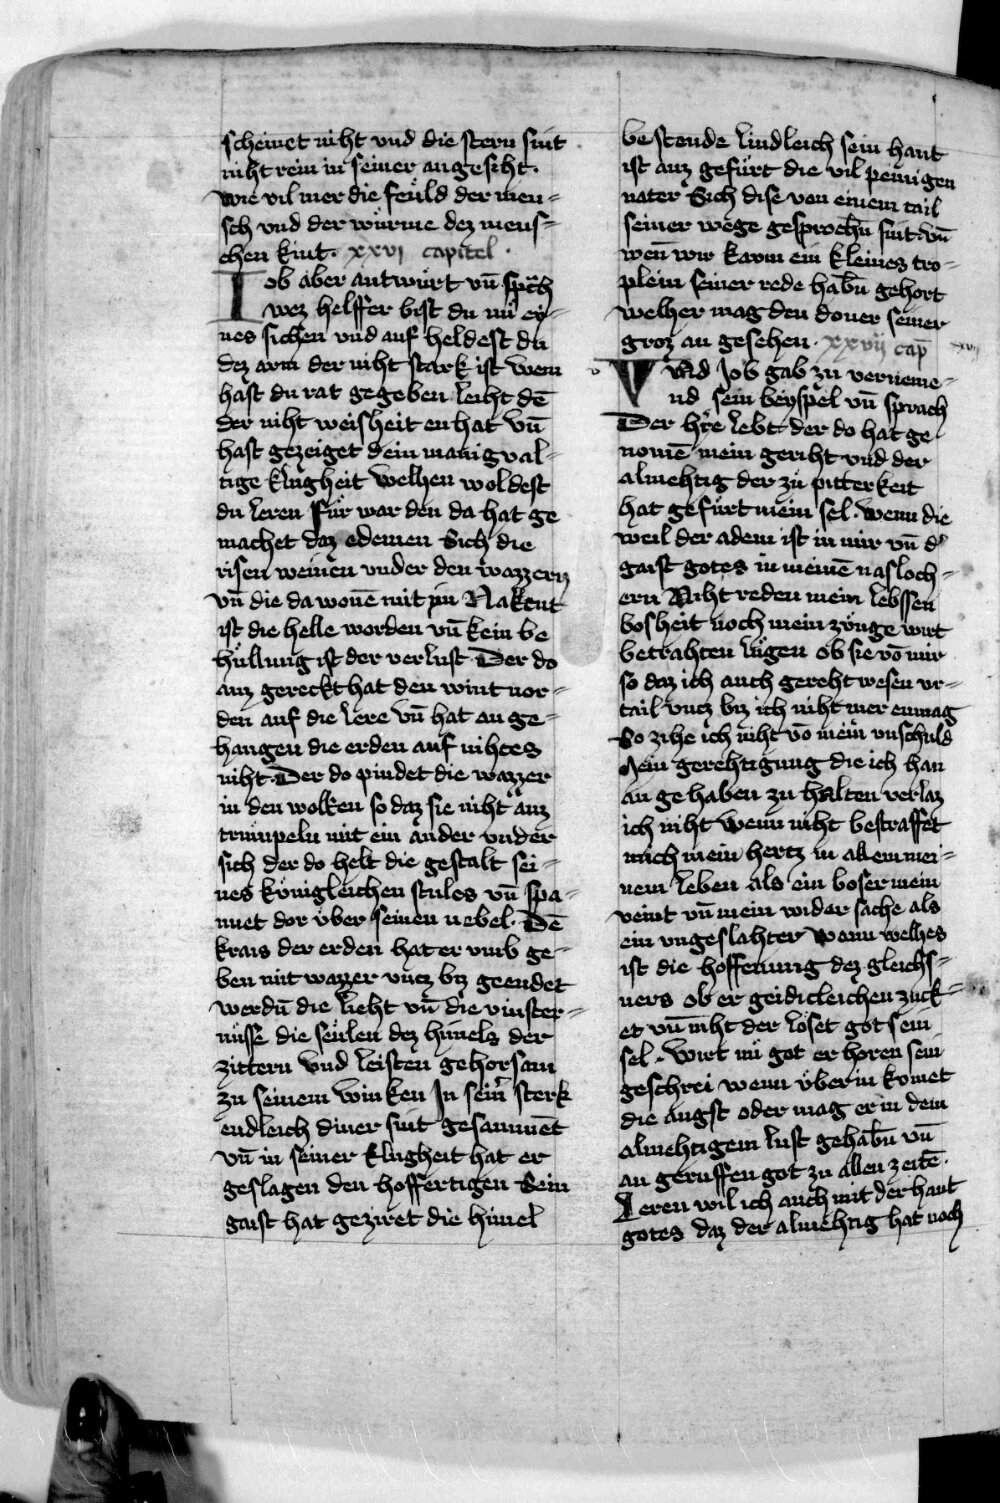 scheinet niht vnd die stern sint
niht rein in seiner angesiht.
wie vil mer die feuͤld der men=
sch vnd der wuͤrme dez mens=
chen kint. xxvi capitel.
Iob aber antwurt vn̄ sp̄ch
wez helffer bist du nu ey=
nes sichen vnd auf heldest du
dez arm der niht stark ist wem
hast du rat gegeben leiht dē
der niht weisheit en hat vn̄
hast gezeiget dein manigual=
tige klugheit welhen woldest
du leren fuͤr war den da hat ge
machet daz edemen Sich die
risen weinen vnder den wazzern
vn̄ die da wonē mit in Nakent
ist die helle worden vn̄ kein be
huͤllung ist der verlust. Der do
auz gerekt hat den wint nor=
den auf die lere vn̄ hat an ge=
hangen die erden auf nihtes
niht. Der do pindet die wazzer
in den wolken so daz sie niht auz
trumpeln mit ein ander vnder
sich der do helt die gestalt sei=
nes kuͤnigleichen stules vn̄ spa=
nnet dor vͤber seinen nebel. Dē
krais der erden hat er vmb ge=
ben mit wazzer vncz biz geendet
werdn̄ die lieht vn̄ die vinster=
nuͤsse die seuͤlen dez himels der
zittern vnd leisten gehorsam
zu seinem winken In sein̄ sterk
endleich diner sint gesamnet
vn̄ in seiner klugheit hat er
geslagen den hoffertigen Sein
gaist hat geziret die himel
bestende lindleich sein hant
ist auz gefuͤrt die vil peinigen
nater Sich dise von einem tail
seiner wege gesprochn̄ sint. vn̄
wen̄ wir kavm ein kleinez tro=
plein seiner rede habn̄ gehort
welher mag den doner seiner
groz an gesehen. xxvij cap̄
Vnd Job gab zu verneme=
nd sein beyspel vn̄ sprach
Der h̄re lebt der do hat ge
nomē mein geriht vnd der
almehtig der zu pitterkeit
hat gefuͤrt mein sel. wenn die
weil der adem ist in mir vn̄ d͛
gaist gotes in meinē nasloch=
ern Niht reden mein lebssen
bosheit noch mein zunge wirt
betrahten luͤgen ob sie vō mir
so daz ich auch gereht wesen vr=
tail vncz biz ich niht mer enmag
So zihe ich niht vō mein̄ vnschuld
Mein gerehtigung die ich han
an gehaben zu halten verlaz
ich niht wenn niht bestraffet
mich mein hertz in allem mei=
nem leben als ein boser mein
veint vn̄ mein wider sache als
ein vngeslahter wann welhes
ist die hoffenung dez gleichs=
ners ob er geidicleichen zuck=
et vn̄ niht der loset got sein
sel. wirt nu got er horen sein
geschrei wenn vͤber in komet
die angst oder mag er in dem
almehtigem lust gehabn̄ vn̄
an geruffen got zu allen zeitē.
Leren wil ich auch mit der hant
gotes daz der almehtig hat noch